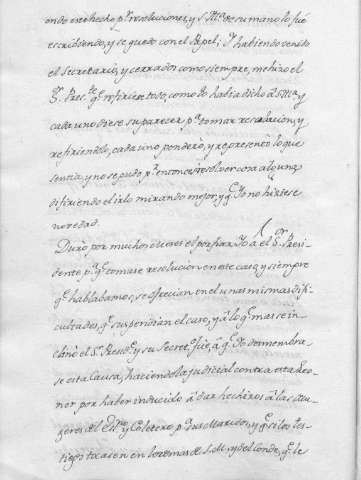 endo este hecho p.ª resoluciones, y S. Mg.ᵈ de su mano lo fué
escribiendo, y se quedó con el Papel; Y habiendo venido
el Secretario, y cerrados como siempre, me hizo el
S.ʳ Pres.ᵗᵉ q.ᵉ refiriese todo, como lo había dicho á S. Mg.ᵈ y
cada uno diese su parecer p.ª tomar resolucion, y
refiriendolo, cada uno ponderó, y representó lo que
sentia, y no se pudo p.ʳ entonces resolver cosa alguna
difiriendo el irlo mirando mejor, y q.ᵉ Yo no hiciese
novedad.
Duró por muchos dias el porfiar Yo á el S.ʳ Presi-
dente p.ª q.ᵉ tomase resolucion en este caso, y siempre
q.ᵉ hablabamos, se ofrecian en el unas mismas difi-
cultades, q.ᵉ suspendian el caso, y á lo q.ᵉ mas se in-
clinó el S.ʳ Presid.ᵗᵉ y su Secret.º fué, á q.ᵉ Yo desmembra-
se esta Causa, haciendola judicial contra este
por haber inducido á dar hechizos á las mu-
geres del y Cabrero p.ª sus Maridos, y q.ᵉ si los tes-
tigos tocasen en los de S. M. y del Conde, q.ᵉ le